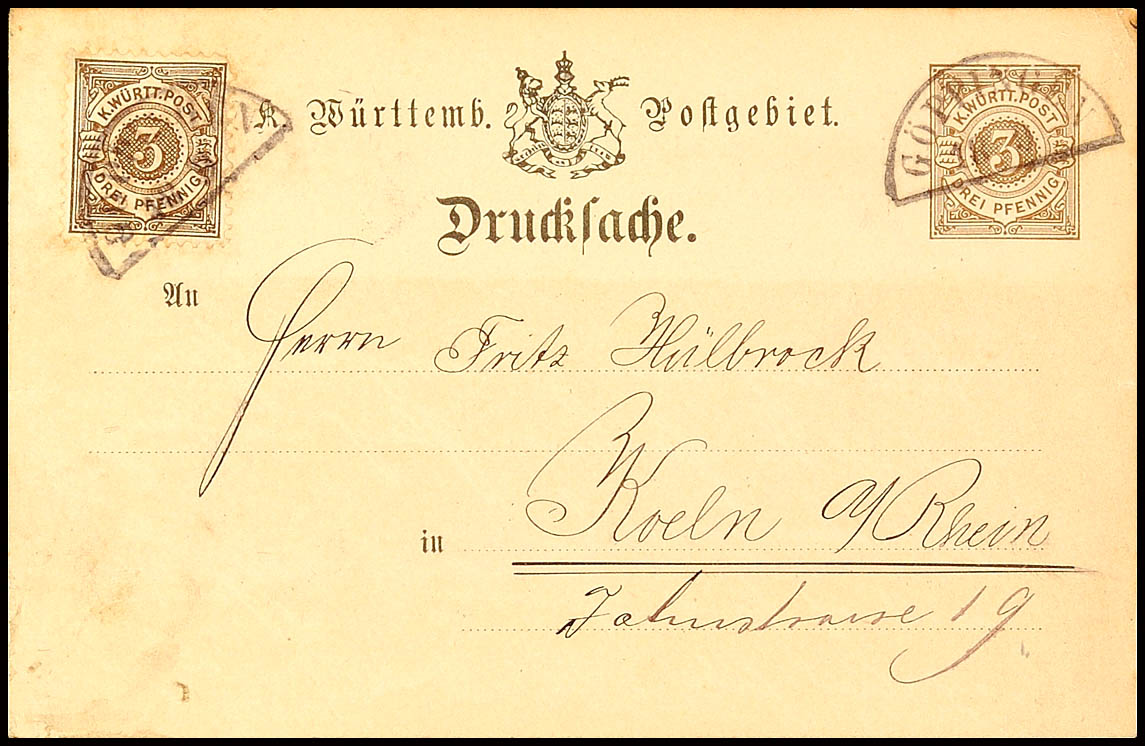 K. WÜRTT. POST
3
DREI PFENNIG
K. Württemb. Postgebiet.
GÖPPINGEN
K. WÜRTT. POST
3
DREI PFENNIG
Drucksache.
An
Herrn Fritz Hülbrock
in Koeln a/Rhein
Jahnstrasse 19